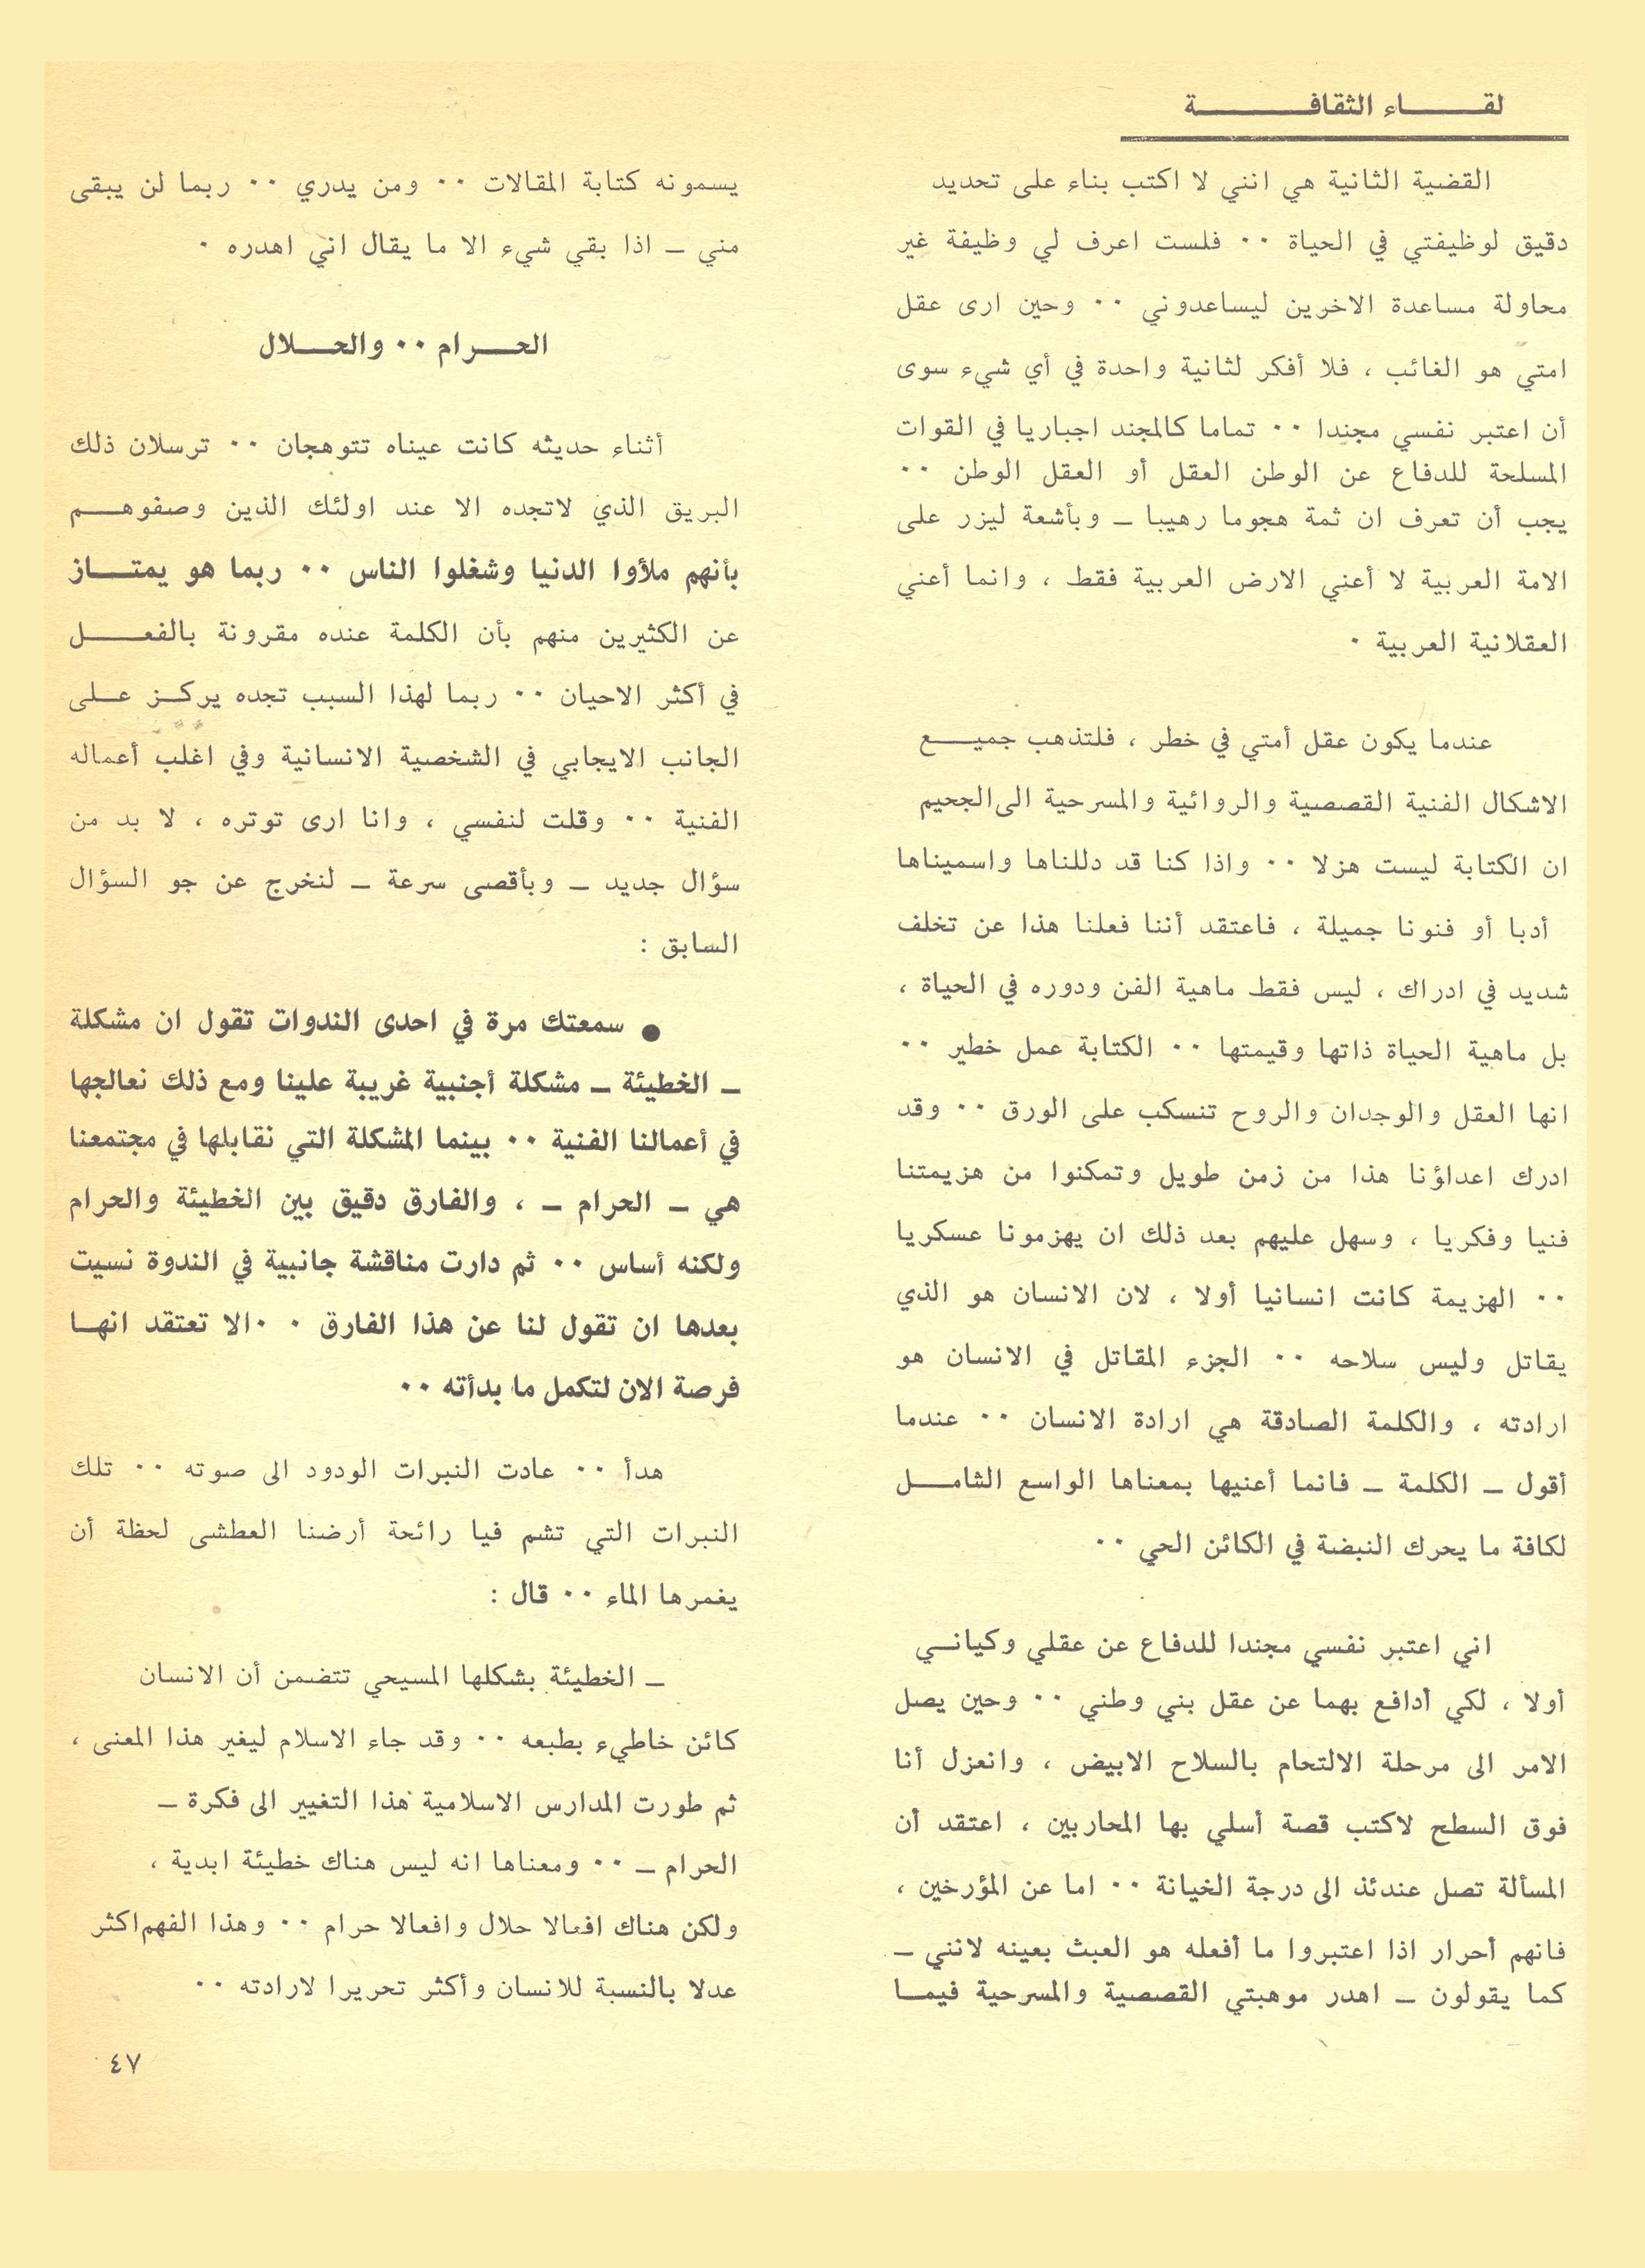 لقاء الثقافة
القضية الثانية هي انني لا اكتب بناء على تحديد
دقيق لوظيفتي في الحياة ٠٠ فلست اعرف لي وظيفة غير
محاولة مساعدة الاخرين ليساعدوني ٠٠ وحين ارى عقل
امتي هو الغائب ، فلا أفكر لثانية واحدة في أي شيء سوى
أن اعتبر نفسي مجندا ٠٠ تماما كالمجند اجباريا في القوات
المسلحة للدفاع عن الوطن العقل أو العقل الوطن ٠٠
يجب أن تعرف ان ثمة هجوما رهيبا ــ وبأشعة ليزر على
الامة العربية لا أعني الارض العربية فقط ، وانما أعني
العقلانية العربية ٠
عندما يكون عقل أمتي في خطر ، فلتذهب جميع
الاشكال الفنية القصصية والروائية والمسرحية الى الجحيم
ان الكتابة ليست هزلا ٠٠ واذا كنا قد دللناها واسميناها
أدبا أو فنونا جميلة ، فاعتقد أننا فعلنا هذا عن تخلف
شديد في ادراك ، ليس فقط ماهية الفن ودوره في الحياة ،
بل ماهية الحياة ذاتها وقيمتها ٠٠ الكتابة عمل خطير ٠٠
انها العقل والوجدان والروح تنسكب على الورق ٠٠ وقد
ادرك اعداؤنا هذا من زمن طويل وتمكنوا من هزيمتنا
فنيا وفكريا ، وسهل عليهم بعد ذلك ان يهزمونا عسكريا
٠٠ الهزيمة كانت انسانيا أولا ، لان الانسان هو الذي
يقاتل وليس سلاحه ٠٠ الجزء المقاتل في الانسان هو
ارادته ، والكلمة الصادقة هي ارادة الانسان ٠٠ عندما
أقول ــ الكلمة ــ فانما أعنيها بمعناها الواسع الشامل
لكافة ما يحرك النبضة في الكائن الحي ٠٠
اني اعتبر نفسي مجندا للدفاع عن عقلي وكياني
أولا ، لكي أدافع بهما عن عقل بني وطني ٠٠ وحين يصل
الامر الى مرحلة الالتحام بالسلاح الابيض ، وانعزل أنا
فوق السطح لاكتب قصة أسلي بها المحاربين ، اعتقد أن
المسألة تصل عندئذ الى درجة الخيانة ٠٠ اما عن المؤرخين ،
فانهم أحرار اذا اعتبروا ما أفعله هو العبث بعينه لانني ــ
كما يقولون ــ اهدر موهبتي القصصية والمسرحية فيما
يسمونه كتابة المقالات ٠٠ ومن يدري ٠٠ ربما لن يبقى
مني ــ اذا بقي شيء الا ما يقال اني اهدره ٠
الحرام ٠٠ والحلال
أثناء حديثه كانت عيناه تتوهجان ٠٠ ترسلان ذلك
البريق الذي لاتجده الا عند اولئك الذين وصفوهم
بأنهم ملأوا الدنيا وشغلوا الناس ٠٠ ربما هو يمتاز
عن الكثيرين منهم بأن الكلمة عنده مقرونة بالفعل
في أكثر الاحيان ٠٠ ربما لهذا السبب تجده يركز على
الجانب الايجابي في الشخصية الانسانية وفي اغلب أعماله
الفنية ٠٠ وقلت لنفسي ، وانا ارى توتره ، لا بد من
سؤال جديد ــ وبأقصى سرعة ــ لنخرج عن جو السؤال
السابق :
● سمعتك مرة في احدى الندوات تقول ان مشكلة
ــ الخطيئة ــ مشكلة أجنبية غريبة علينا ومع ذلك نعالجها
في أعمالنا الفنية ٠٠ بينما المشكلة التي نقابلها في مجتمعنا
هي ــ الحرام ــ ، والفارق دقيق بين الخطيئة والحرام
ولكنه أساس ٠٠ ثم دارت مناقشة جانبية في الندوة نسيت
بعدها ان تقول لنا عن هذا الفارق ٠ ٠الا تعتقد انها
فرصة الان لتكمل ما بدأته ٠٠
هدأ ٠٠ عادت النبرات الودود الى صوته ٠٠ تلك
النبرات التي تشم فيا رائحة أرضنا العطشى لحظة أن
يغمرها الماء ٠٠ قال :
ــ الخطيئة بشكلها المسيحي تتضمن أن الانسان
كائن خاطيء بطبعه ٠٠ وقد جاء الاسلام ليغير هذا المعنى ،
ثم طورت المدارس الاسلامية هذا التغيير الى فكرة ــ
الحرام ــ ٠٠ ومعناها انه ليس هناك خطيئة ابدية ،
ولكن هناك افعالا حلال وافعالا حرام ٠٠ وهذا الفهم اكثر
عدلا بالنسبة للانسان وأكثر تحريرا لارادته ٠٠
٤٧